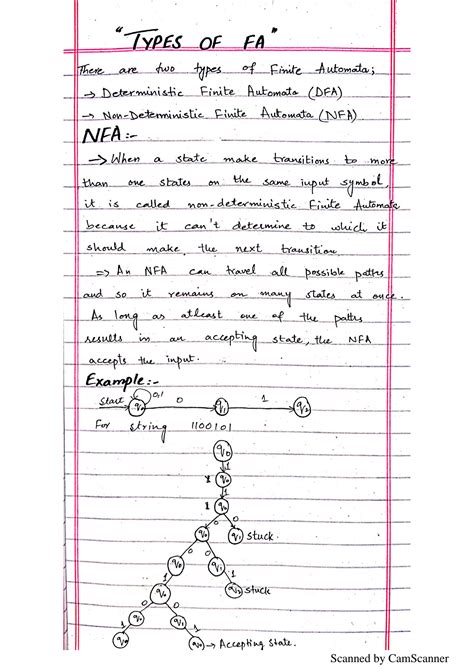 "TYPES OF FA"
There are two types of Finite Automata;
→ Deterministic Finite Automata (DFA)
→ Non-Deterministic Finite Automata (NFA)
NFA:-
→ When a state make transitions to more
than one states on the same input symbol,
it is called non-deterministic Finite Automata
because it can't determine to which it
should make the next transition
⇒ An NFA can travel all possible paths
and so it remains on many states at once.
As long as atleast one of the paths
results in an accepting state, the NFA
accepts the input.
Example:-
Start q0 0,1 0 q1 1 q2
For string 1100101
q0
1
q0
1
q0
0 0
q0 q1 stuck
0 0
q0 q1
1 1
q0 q2 stuck
0 0
q0 q1
1 1
q0 q2 → Accepting State.
Scanned by CamScanner